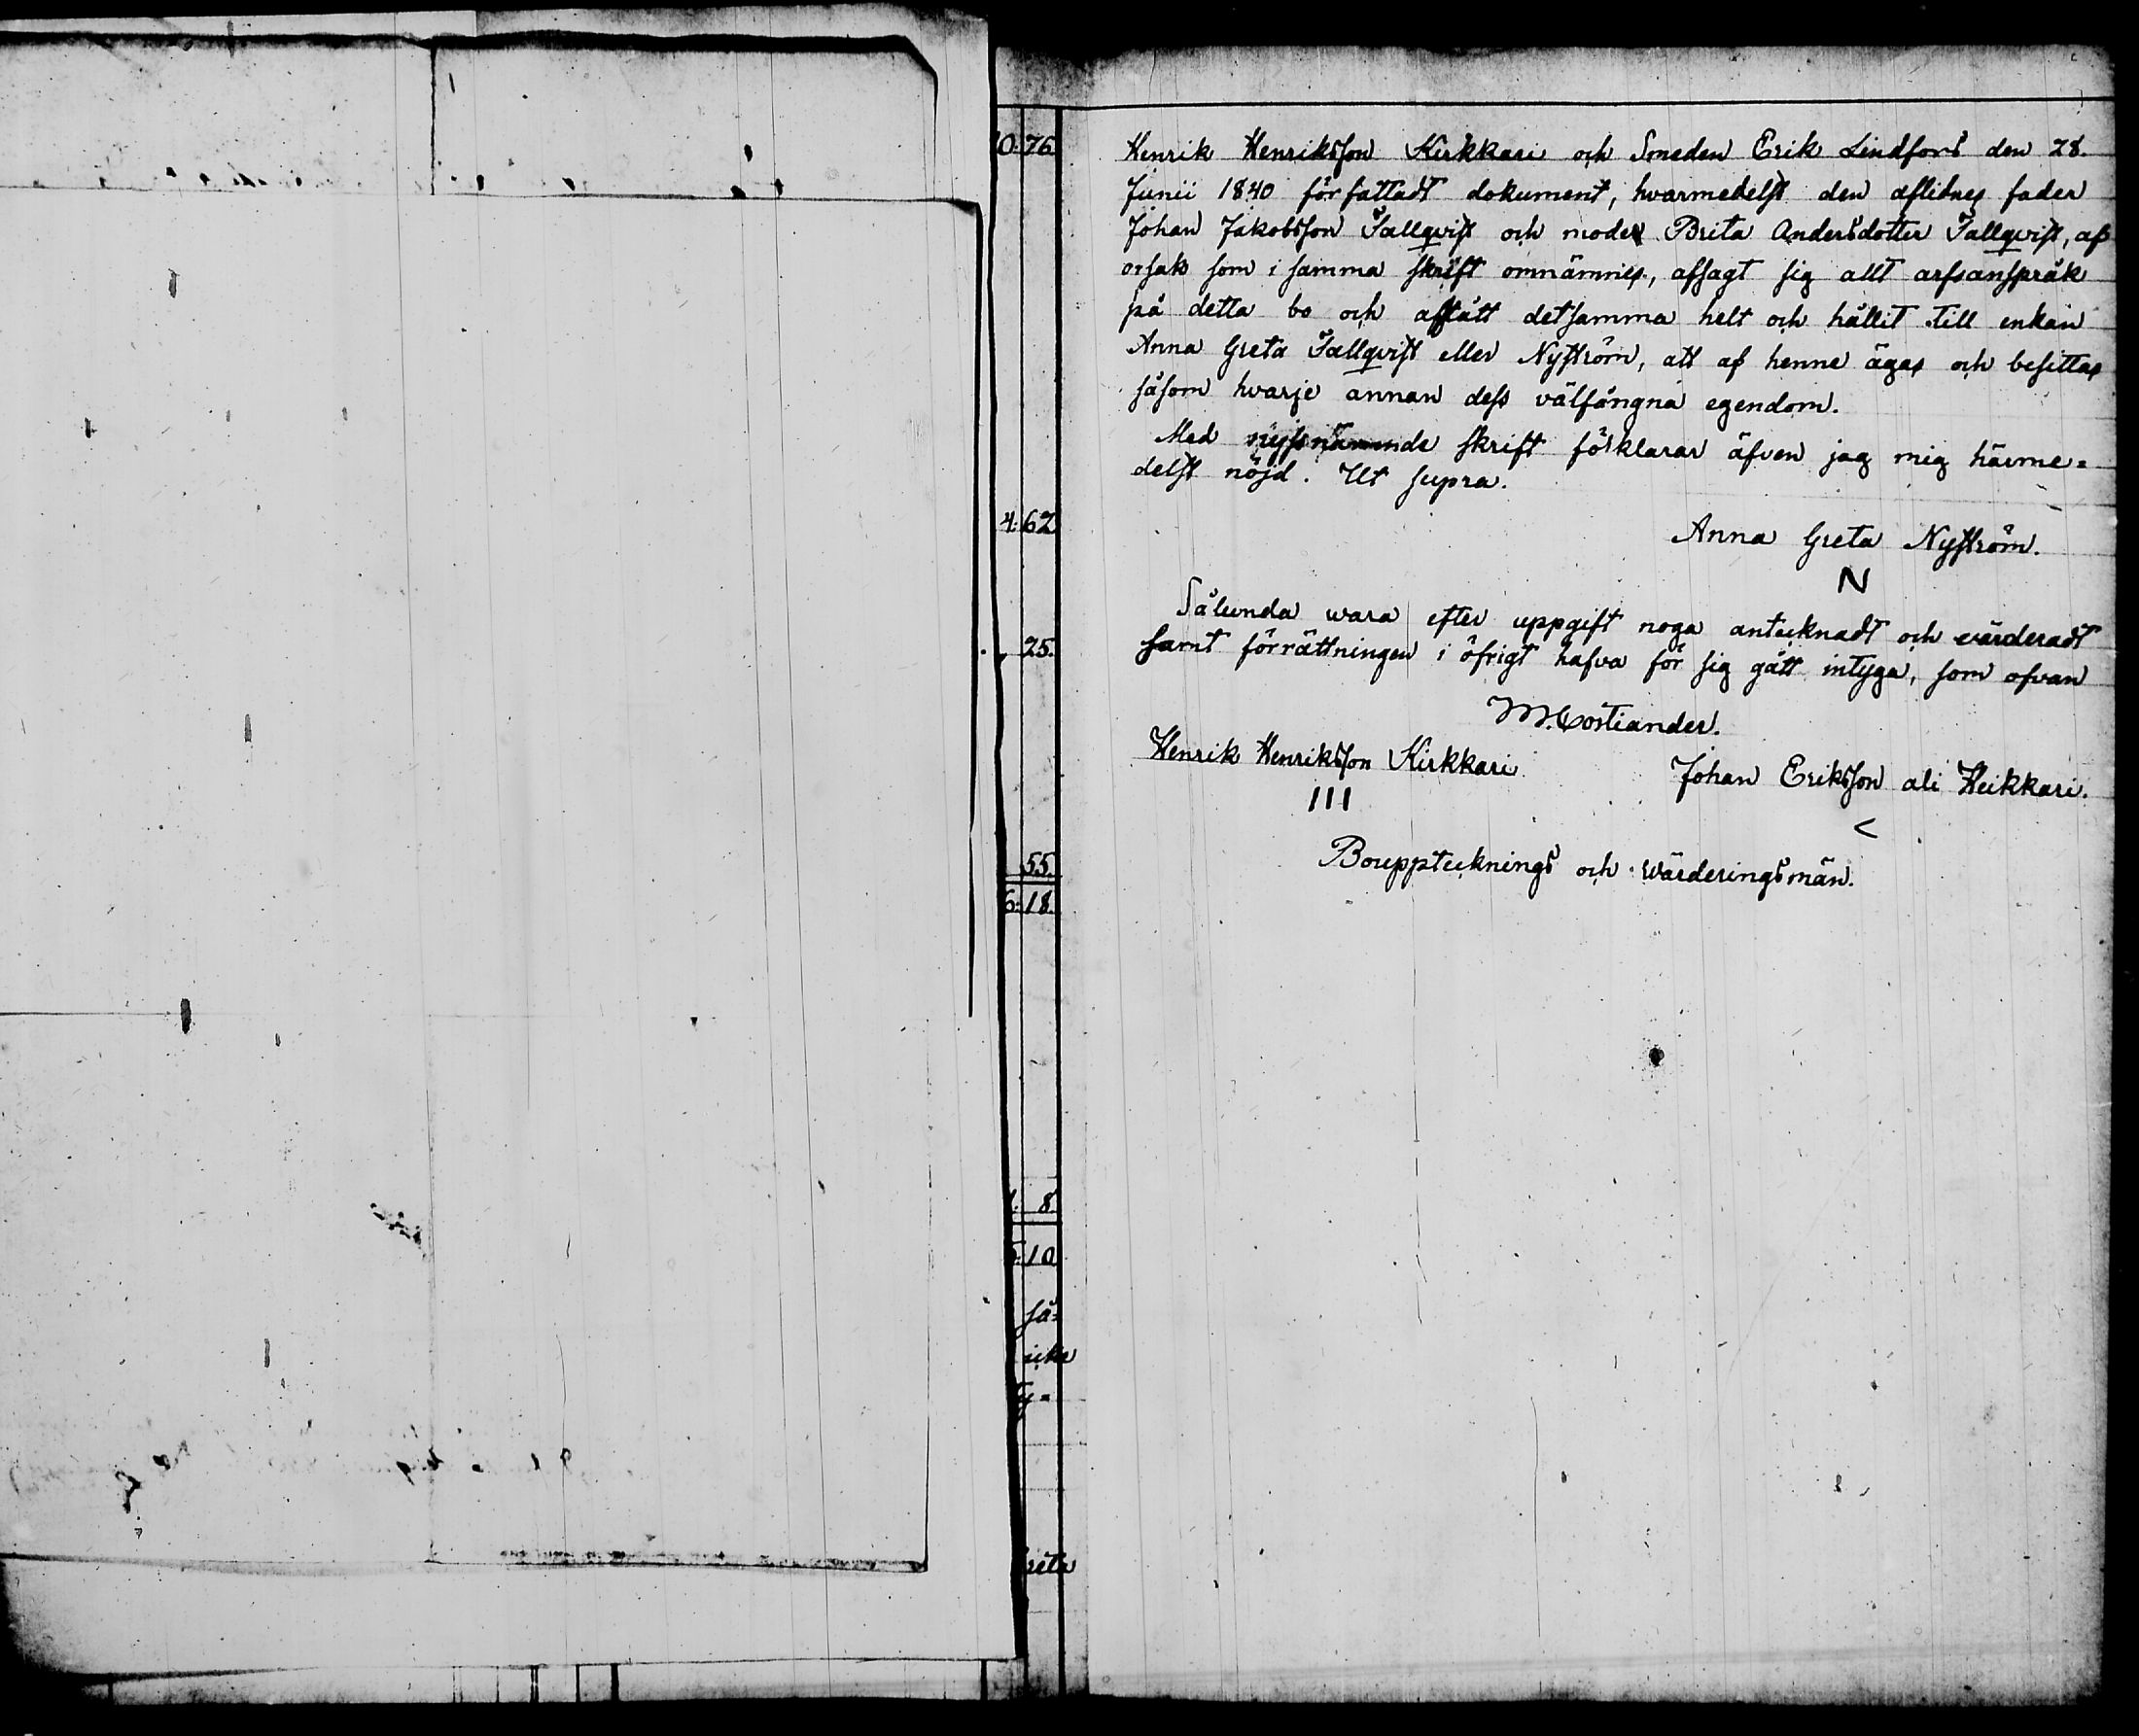 0:76
4:62
25.
55.
6:18.
8
:10
så=
icke
reta
Henrik Henriksson Kirkkari och Smeden Erik Lindfors den 28.
Junii 1840 författadt dokument, hvarmedelst den aflidnes fader
Johan Jakobsson Tallqvist och moder Brita Andersdotter Tallqvist, af
orsak som i samma skrift omnämnes, afsagt sig allt arfsanspråk
på detta bo och afstått detsamma helt och hållit till enkan
Anna Greta Tallqvist eller Nyström, att af henne ägas och besittas
såsom hvarje annan dess välfångna egendom.
Med nyssnämnde skrift förklarar äfven jag mig härme=
delst nöjd. Ut supra.
Anna Greta Nyström.
N
Sålunda wara efter uppgift noga antecknadt och wärderadt
samt förrättningen i öfrigt hafva för sig gått intyga, som ofvan
M. Costiander.
Henrik Henriksson Kirkkari
III
Johan Eriksson ali Heikkari.
<
Bouppteknings och wärderingsmän.